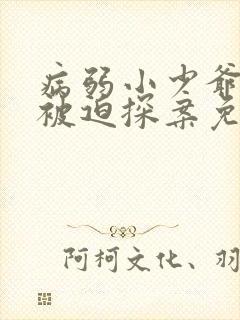 病弱小少爷
被迫探案免
阿柯文化、羽